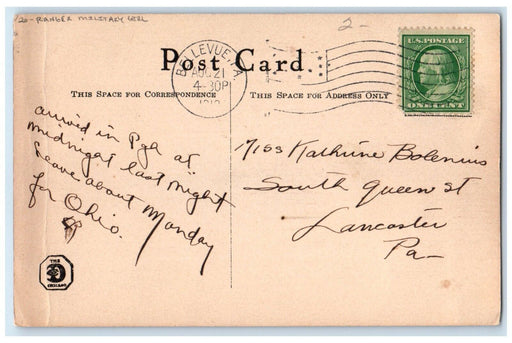 20- RANGER MILITARY GIRL
2-
Post Card.
BELLEVUE, PA
AUG 21
4-30P
U.S. POSTAGE
ONE CENT
THIS SPACE FOR CORRESPONDENCE
THIS SPACE FOR ADDRESS ONLY
arrived in Pgh at
midnight last night
Leave about Monday
for Ohio.
Miss Kathrine Bolenius
South Queen st
Lancaster
Pa-
THE
CHICAGO